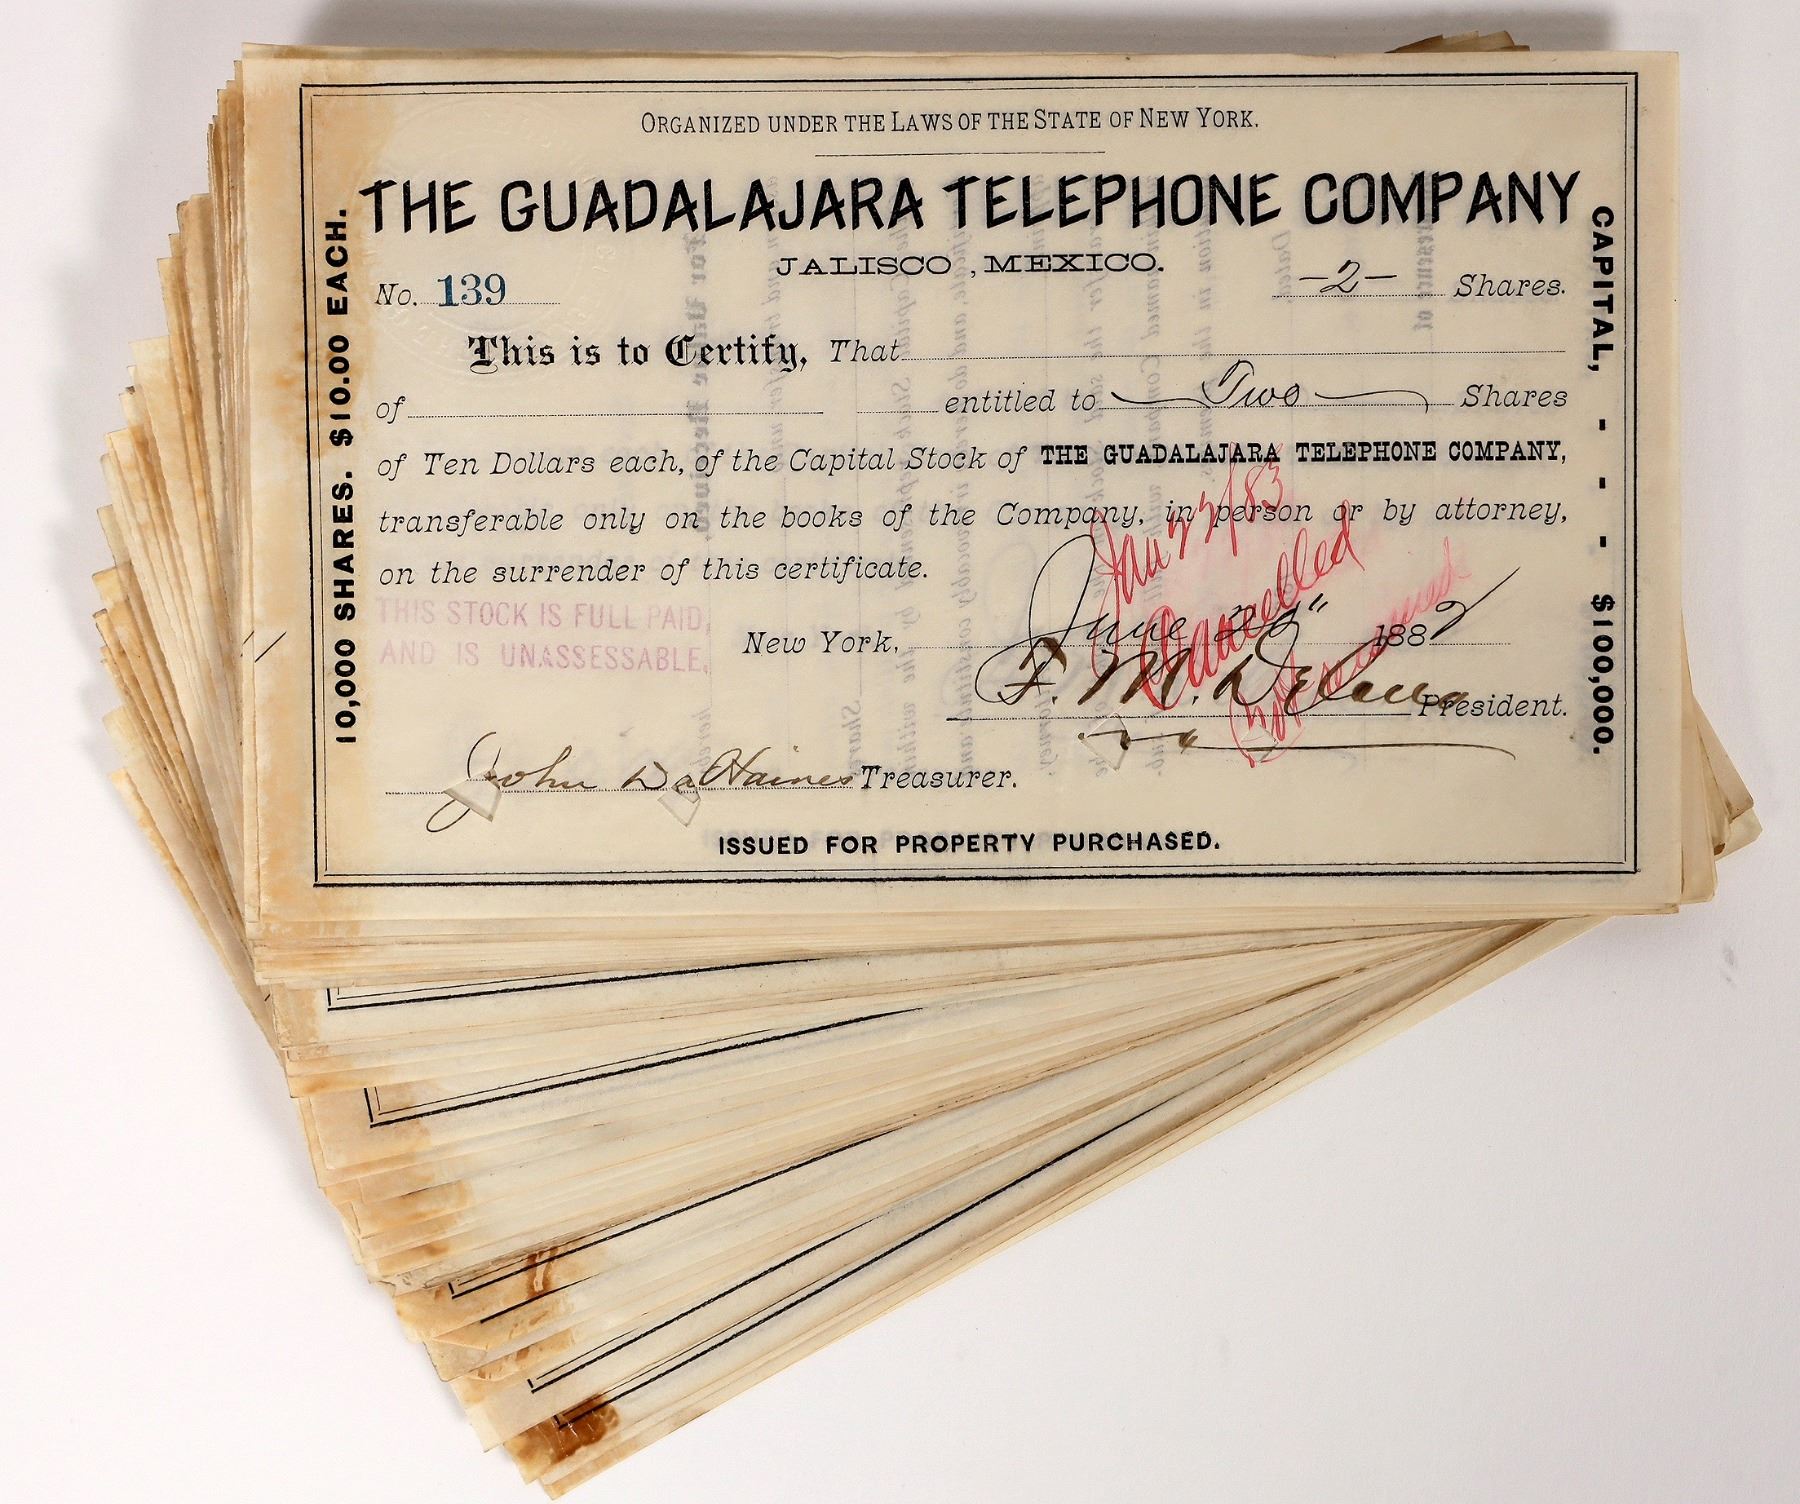 ORGANIZED UNDER THE LAWS OF THE STATE OF NEW YORK.
THE GUADALAJARA TELEPHONE COMPANY
JALISCO, MEXICO.
No. 139
-2- Shares.
This is to Certify, That
of entitled to Two Shares
of Ten Dollars each, of the Capital Stock of THE GUADALAJARA TELEPHONE COMPANY,
transferable only on the books of the Company, in person or by attorney,
on the surrender of this certificate.
THIS STOCK IS FULL PAID,
AND IS UNASSESSABLE.
New York, June 1882
F. M. President.
John Haines Treasurer.
ISSUED FOR PROPERTY PURCHASED.
10,000 SHARES. $10.00 EACH.
CAPITAL, - - - $100,000.
Cancelled